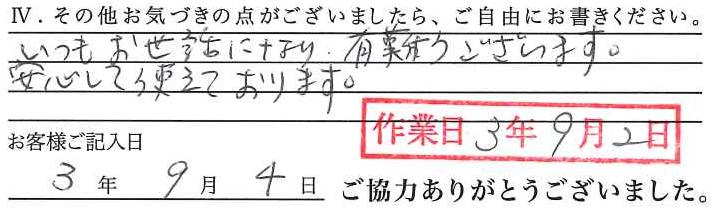 Ⅳ．その他お気づきの点がございましたら、ご自由にお書きください。
いつもお世話になり、有難うございます。
安心して使えております。
作業日 3年9月2日
お客様ご記入日
3年9月4日 ご協力ありがとうございました。